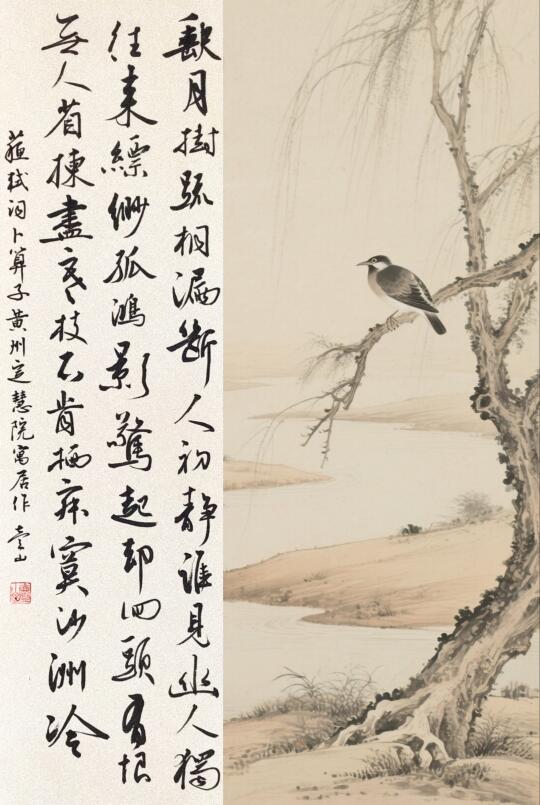 缺月掛疏桐漏斷人初靜誰見幽人獨
往來縹緲孤鴻影驚起却回頭有恨
無人省揀盡寒枝不肯栖寂寞沙洲冷
蘇軾詞卜算子黃州定慧院寓居作